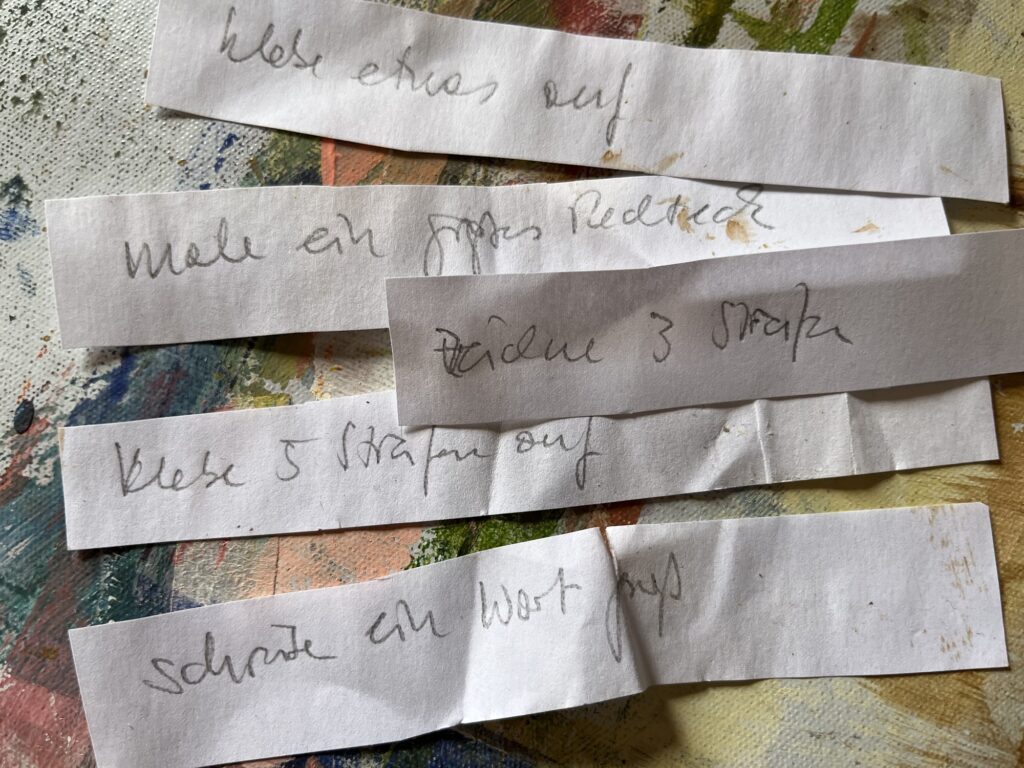 klebe etwas auf
male ein großes Rechteck
Zeichne 3 Streifen
Klebe 5 Streifen auf
schreibe ein Wort groß